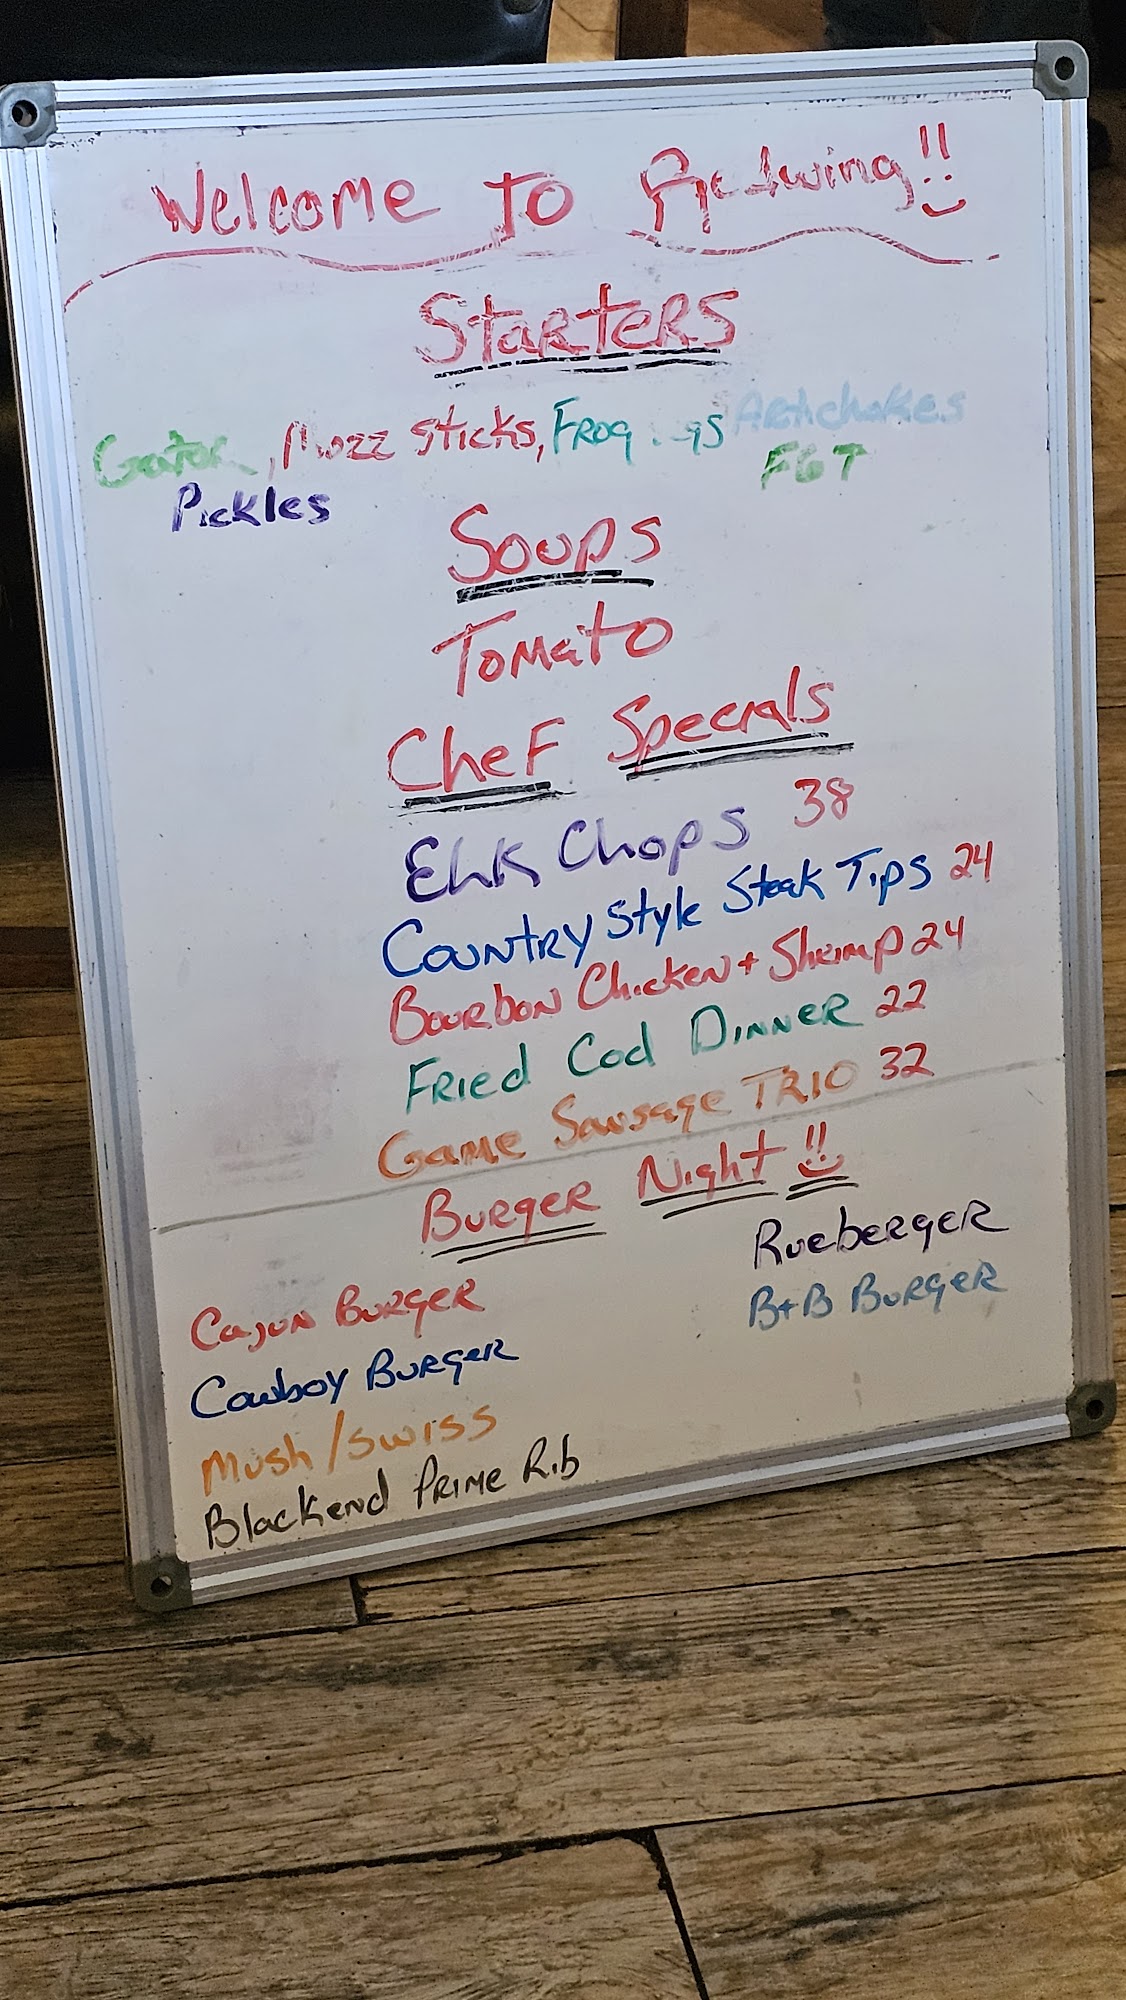 Welcome To Redwing!!
Starters
Gator, Mozz Sticks, Frog Legs Artichokes
Pickles FGT
Soups
Tomato
Chef Specials
Elk Chops 38
Country Style Steak Tips 24
Bourbon Chicken + Shrimp 24
Fried Cod Dinner 22
Game Sausage TRIO 32
Burger Night!!
Rueberger
Cajun Burger
B+B Burger
Cowboy Burger
Mush/Swiss
Blackend Prime Rib